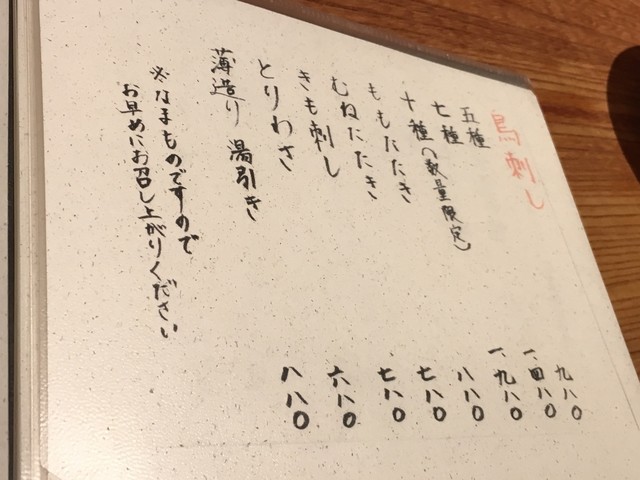 鳥刺し
五種 九八〇
七種 一、四八〇
十種（数量限定） 一、九八〇
ももたたき 八八〇
むねたたき 七八〇
きも刺し 七八〇
とりわさ 六八〇
薄造り 湯引き 八八〇
※なまものですので
お早めにお召し上がりください